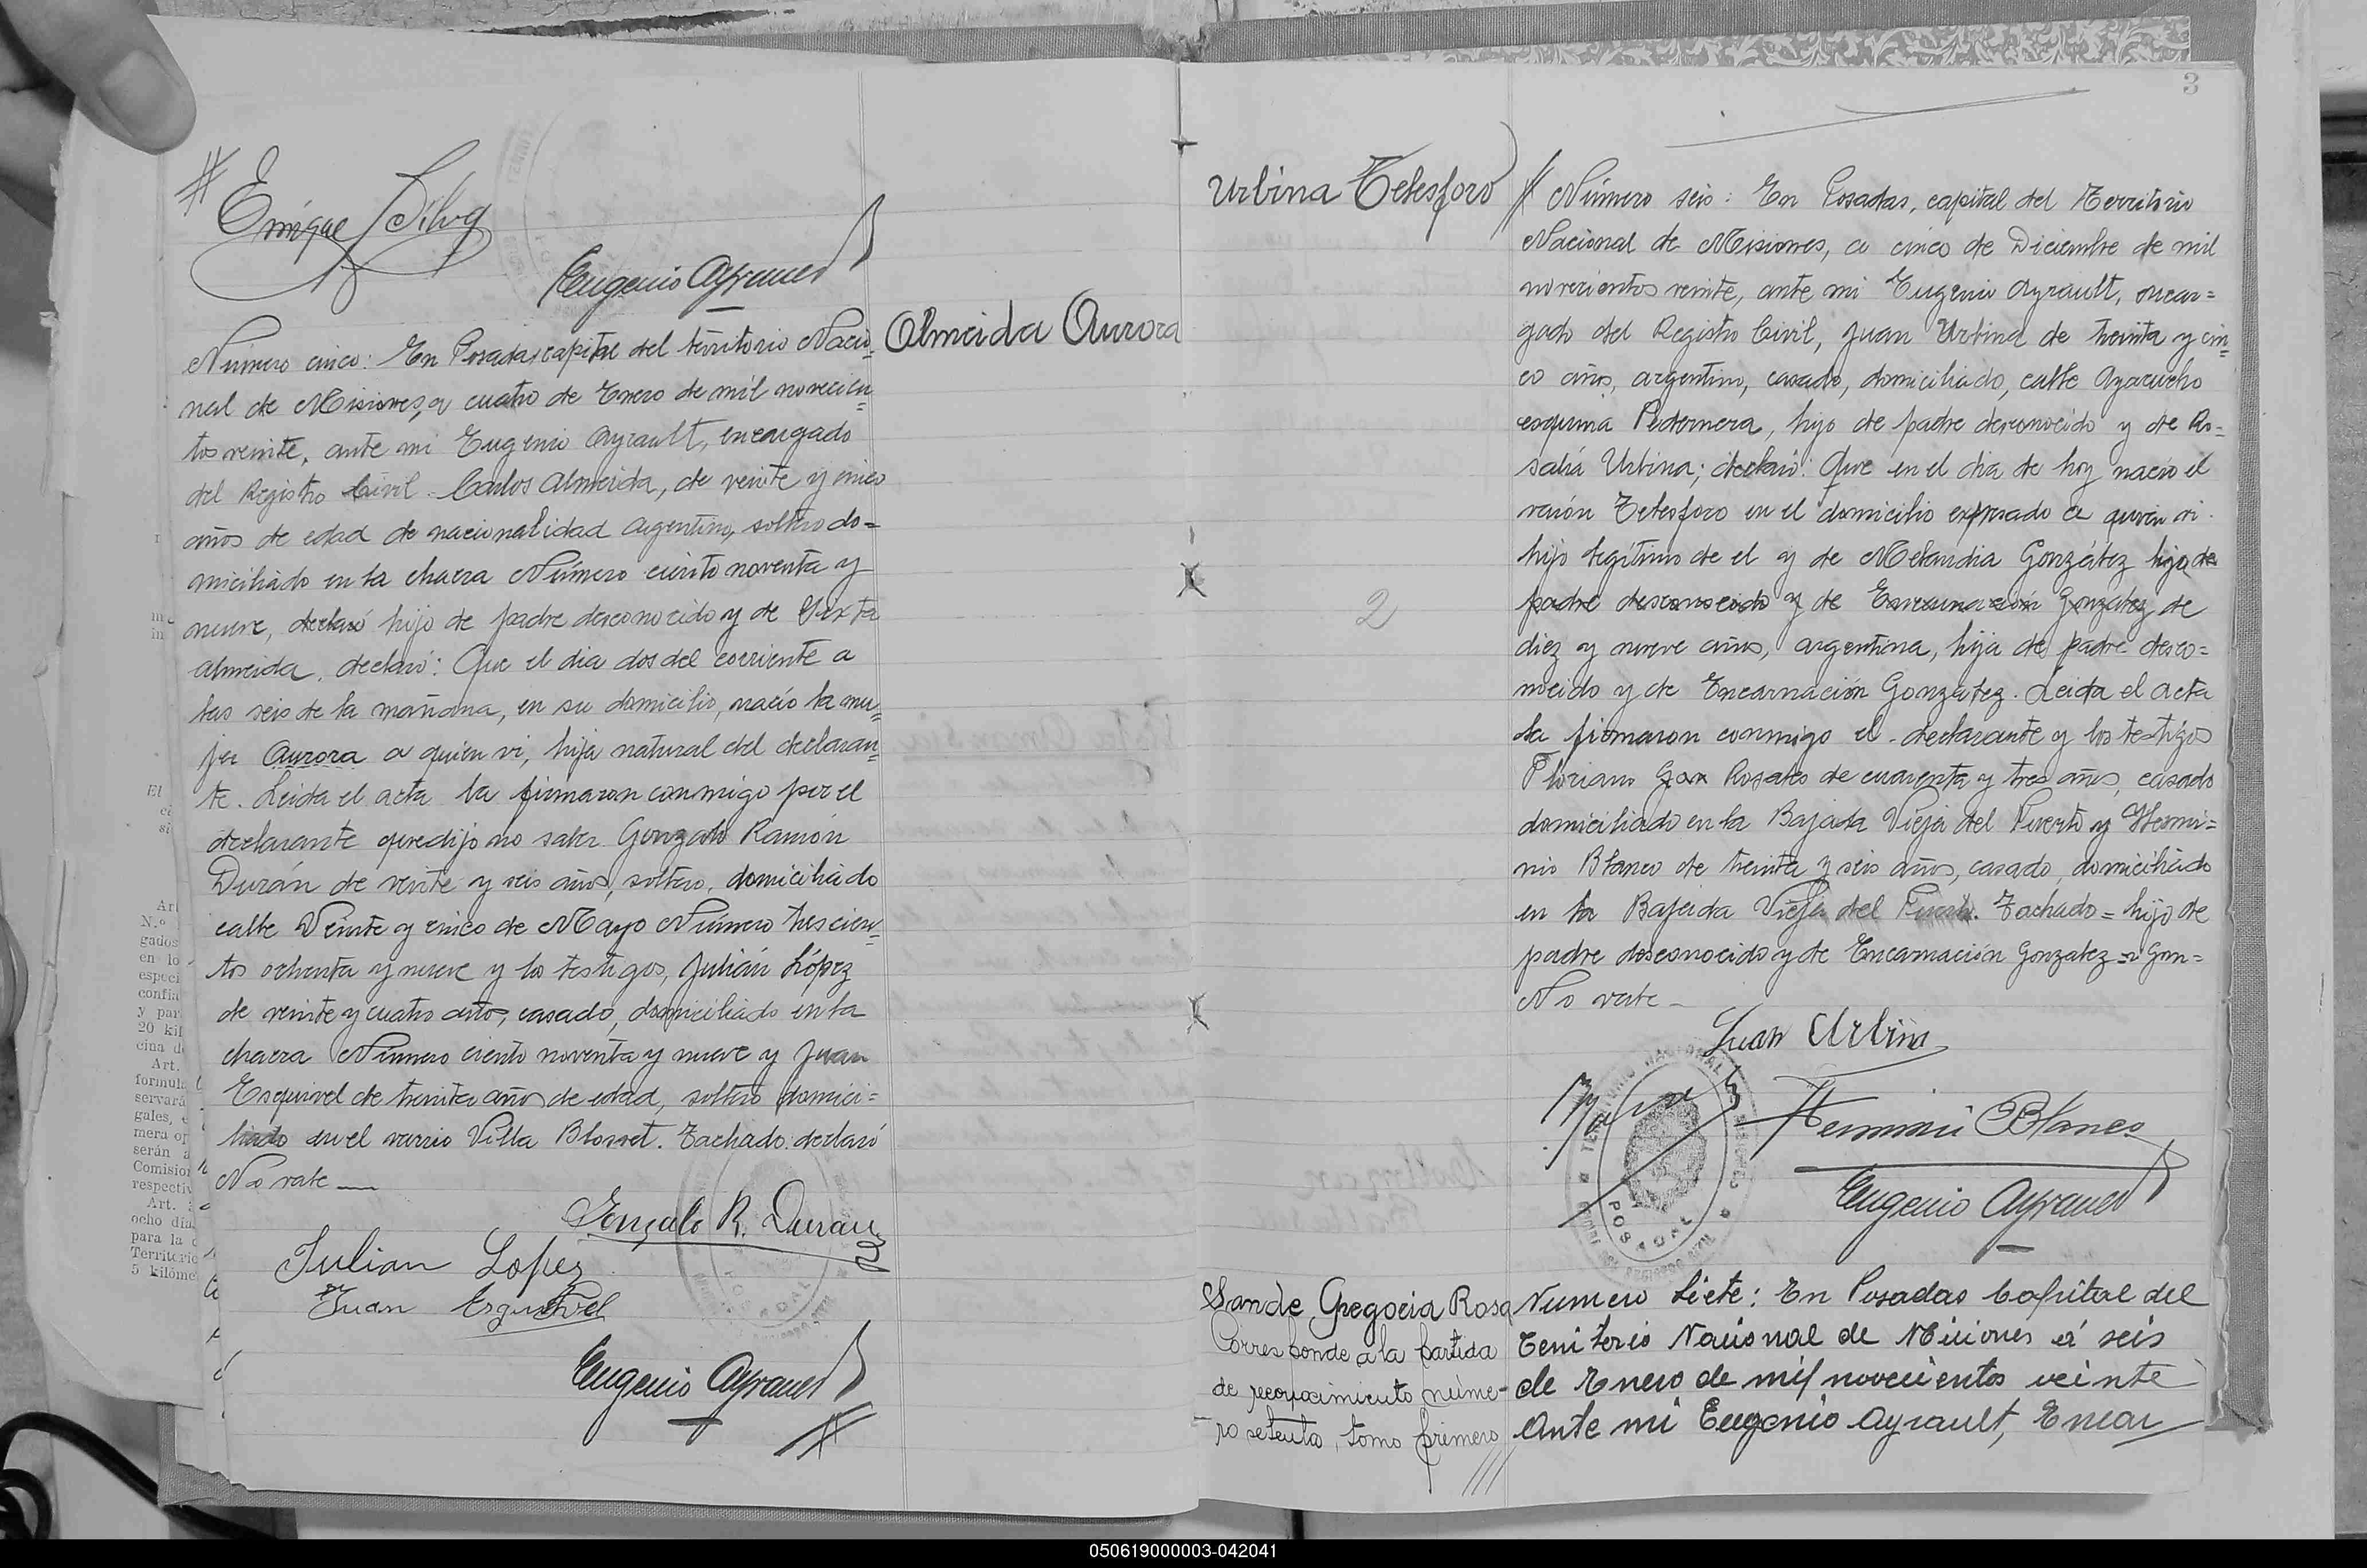 Enrique Silva
Eugenio Ayrault
Almeida Aurora
Número cinco: En Posadas, capital del territorio Nacio-
nal de Misiones, a cuatro de Enero de mil novecien=
tos veinte, ante mi Eugenio Ayrault, encargado
del Registro Civil Carlos Almeida, de veinte y cinco
años de edad de nacionalidad argentino, soltero do=
miciliado en la chacra Número ciento noventa y
nueve, declaró hijo de padre desconocido y de Sixta
Almeida, declaró: Que el dia dos del corriente a
las seis de la mañana, en su domicilio, nació la mu=
jer Aurora a quien vi, hija natural del declaran=
te. Leida el acta la firmaron conmigo por el
declarante que dijo no saber Gonzalo Ramón
Durán de veinte y seis años, soltero, domiciliado
calle Veinte y cinco de Mayo Número trescien=
tos ochenta y nueve y los testigos, Julián López
de veinte y cuatro años, casado, domiciliado en la
chacra Número ciento noventa y nueve y Juan
Esquivel de treinta años de edad, soltero domici=
liado en el varrio Villa Blosset. Tachado: declaró
No vale
Gonzalo R. Duran
Julian Lopez
Juan Esquivel
Eugenio Ayrault
3
Urbina Telesforo
Número seis: En Posadas, capital del Territorio
Nacional de Misiones, a cinco de Diciembre de mil
novecientos veinte, ante mi Eugenio Ayrault, encar=
gado del Registro Civil, Juan Urbina de treinta y cin=
co años, argentino, casado, domiciliado, calle Ayacucho
esquina Pedernera, hijo de padre desconocido y de Ro=
salia Urbina; declaró: Que en el dia de hoy nació el
varón Telesforo en el domicilio expresado a quien vi.
hijo legítimo de el y de Melandia González hija de
padre desconocido y de Encarnación Gonzalez de
diez y nueve años, argentina, hija de padre desco=
nocido y de Encarnación González. Leida el acta
la firmaron conmigo el declarante y los testigos
Floriano Gon Rosales de cuarenta y tres años, casado
domiciliado en la Bajada Vieja del Puerto y Hermi=
nio Blanco de treinta y seis años, casado, domiciliado
en la Bajada Vieja del Puerto. Tachado = hijo de
padre desconocido y de Encarnación Gonzalez = Gon=
No vale
2
Juan Urbina
Herminio Blanco
Eugenio Ayrault
POSADAS
Sande, Gregoria Rosa
Corresponde a la partida
de reconocimiento núme-
ro setenta, tomo primero
Numero Siete: En Posadas Capital del
Territorio Nacional de Miciones á seis
de Enero de mil novecientos veinte
Ante mi Eugenio Ayrault, Encar
El
Art
N.º
gados
en lo
especi
confia
y par
20 kil
cina d
Art.
formul
servará
gales,
mera op
serán a
Comision
respectiv
Art.
ocho dia
para la
Territorio
5 kilóme
050619000003-042041